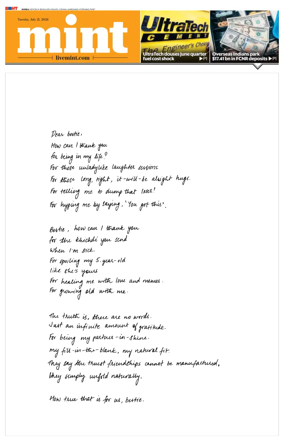 Tuesday, July 21, 2026
mint
livemint.com
UltraTech
CEMENT
The Engineer's Choice
UltraTech douses June quarter fuel cost shock ▶P1
Overseas Indians park $17.41 bn in FCNR deposits ▶P1
Dear bestie,
How can I thank you
for being in my life?
For those unladylike laughter sessions
For those long, tight, it-will-be-alright hugs.
For telling me to dump that loser!
For hyping me by saying, 'You got this'.
Bestie, how can I thank you
for the khichdi you send
when I'm sick.
For spoiling my 5-year-old
like she's yours
For healing me with love and memes.
For growing old with me.
The truth is, there are no words.
Just an infinite amount of gratitude.
For being my partner-in-shine.
my fill-in-the-blank, my natural fit.
They say the truest friendships cannot be manufactured,
they simply unfold naturally.
How true that is for us, bestie.